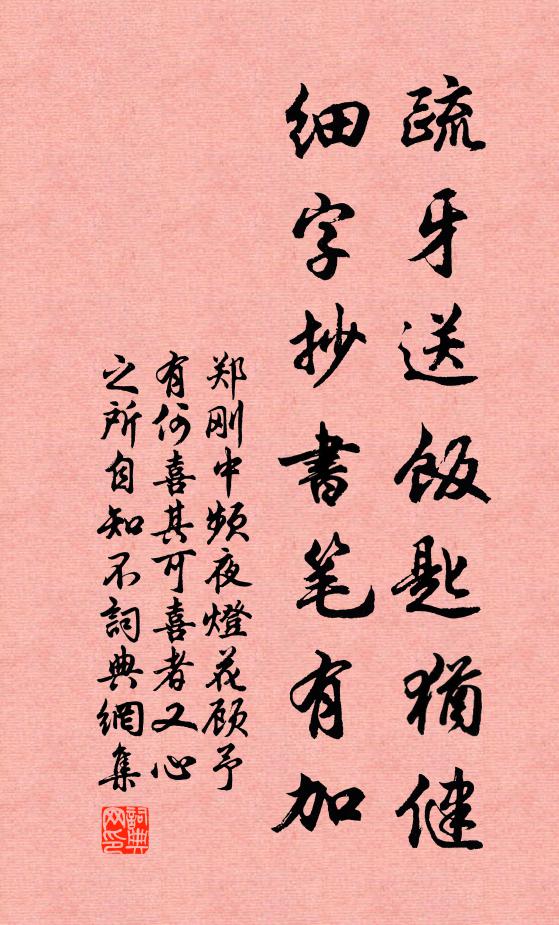 疏牙送飯匙猶健
細字抄書笔有加
郑刚中频夜燈花顾予
有何喜其可喜者又心
之所自知不詞典網集
詞典
网印